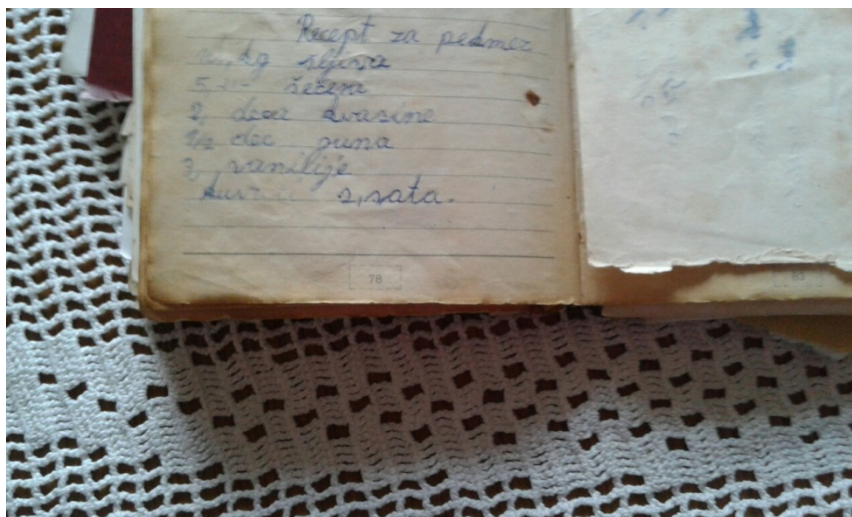 Recept za pekmez
kg sljiva
5 -"- šećera
2, deca kvasine
1/2 dec ruma
3, vanilije
2, sata.
78
83